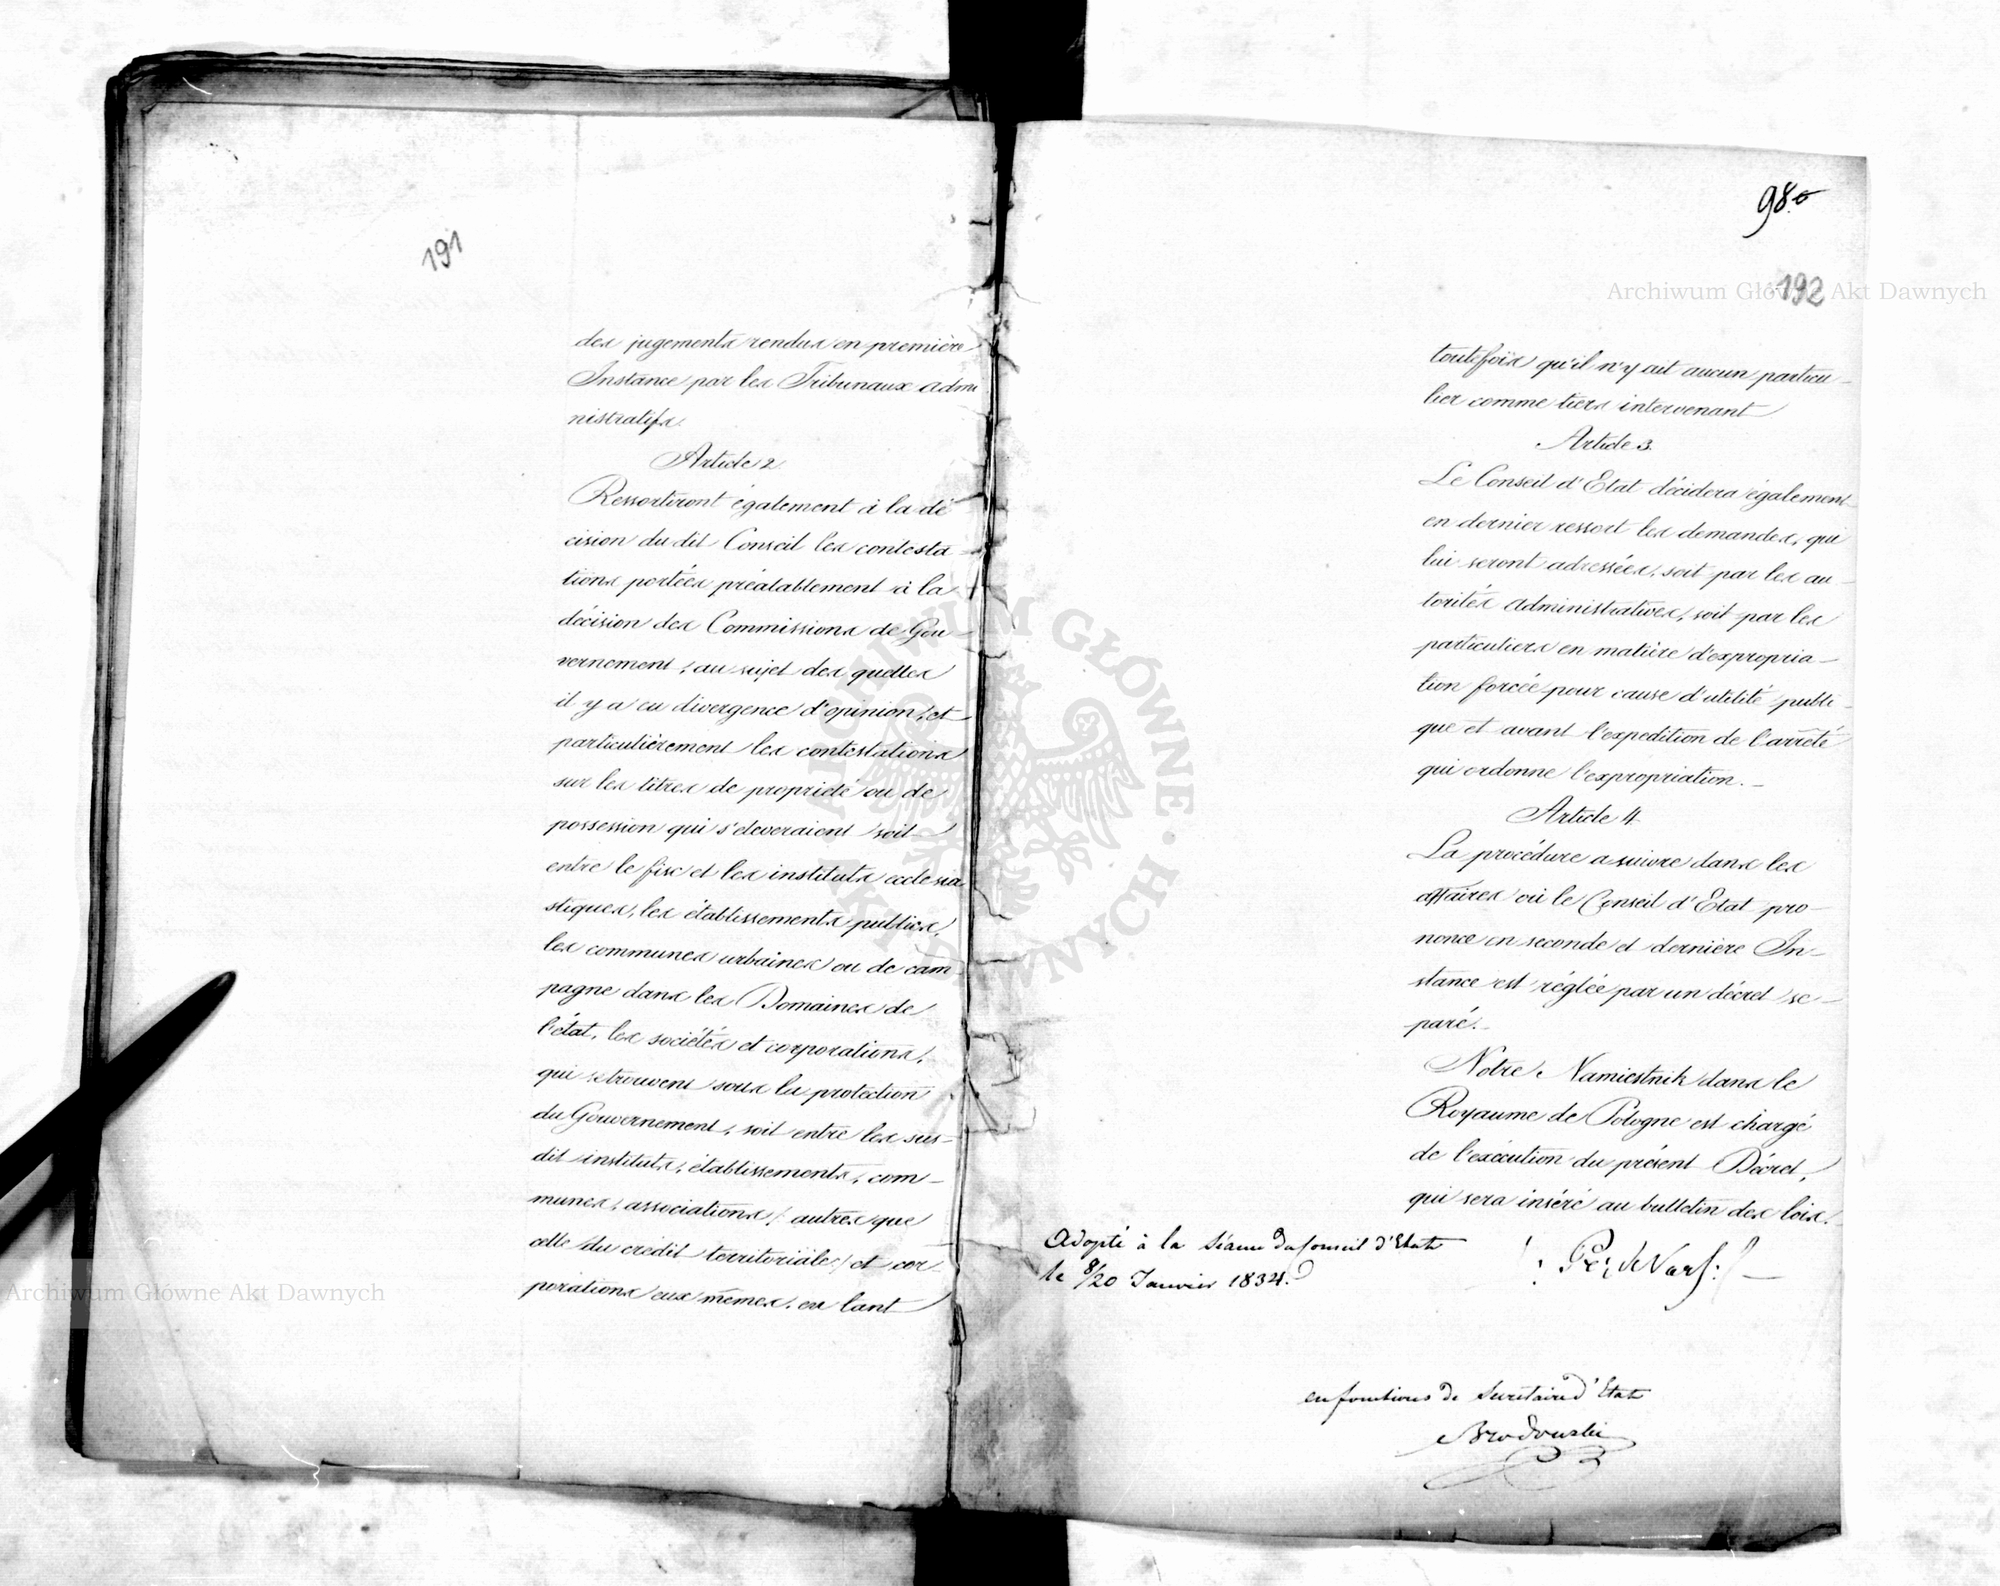 191
des jugements rendus en première
Instance par les Tribunaux admi
nistratifs.
Article 2.
Ressortiront également à la dé
cision du dit Conseil les contesta-
tions portées préalablement à la
décision des Commissions de Gou-
vernement, au sujet des quelles
il y a eu divergence d'opinion, et
particulièrement les contestations
sur les titres de propriété ou de
possession qui s'eleveraient soit
entre le fisc et les instituts ecclesia
stiques, les établissements publics,
les communes urbaines ou de cam-
pagne dans les Domaines de
l'état, les sociétés et corporations,
qui se trouvent sous la protection
du Gouvernement, soit entre les sus-
dit instituts, établissements, com-
munes, associations / autres que
celle du crédit territoriale / et cor-
porations eux mêmes, en tant
98.
192
toutefois qu'il n'y ait aucun particu-
lier comme tiers intervenant
Article 3.
Le Conseil d'Etat décidera également
en dernier ressort les demandes, qui
lui seront adressées, soit par les au-
torités administratives, soit par les
particuliers en matière d'expropria-
tion forcée pour cause d'utilité publi-
que et avant l'expedition de l'arrêté
qui ordonne l'expropriation.-
Article 4.
La procédure a suivre dans les
affaires où le Conseil d'Etat pro-
nonce en seconde et dernière In-
stance est réglée par un décret se-
paré.-
Notre Namiestnik dans le
Royaume de Pologne est chargé
de l'exécution du présent Décret,
qui sera inséré au bulletin des lois.
Adopté à la Séance du Conseil d'Etat
le 8/20 Janvier 1834.
en fonctions de Secrétaire d'Etat
Brodowski
Archiwum Główne Akt Dawnych
Archiwum Główne Akt Dawnych
ARCHIWUM GŁÓWNE AKT DAWNYCH